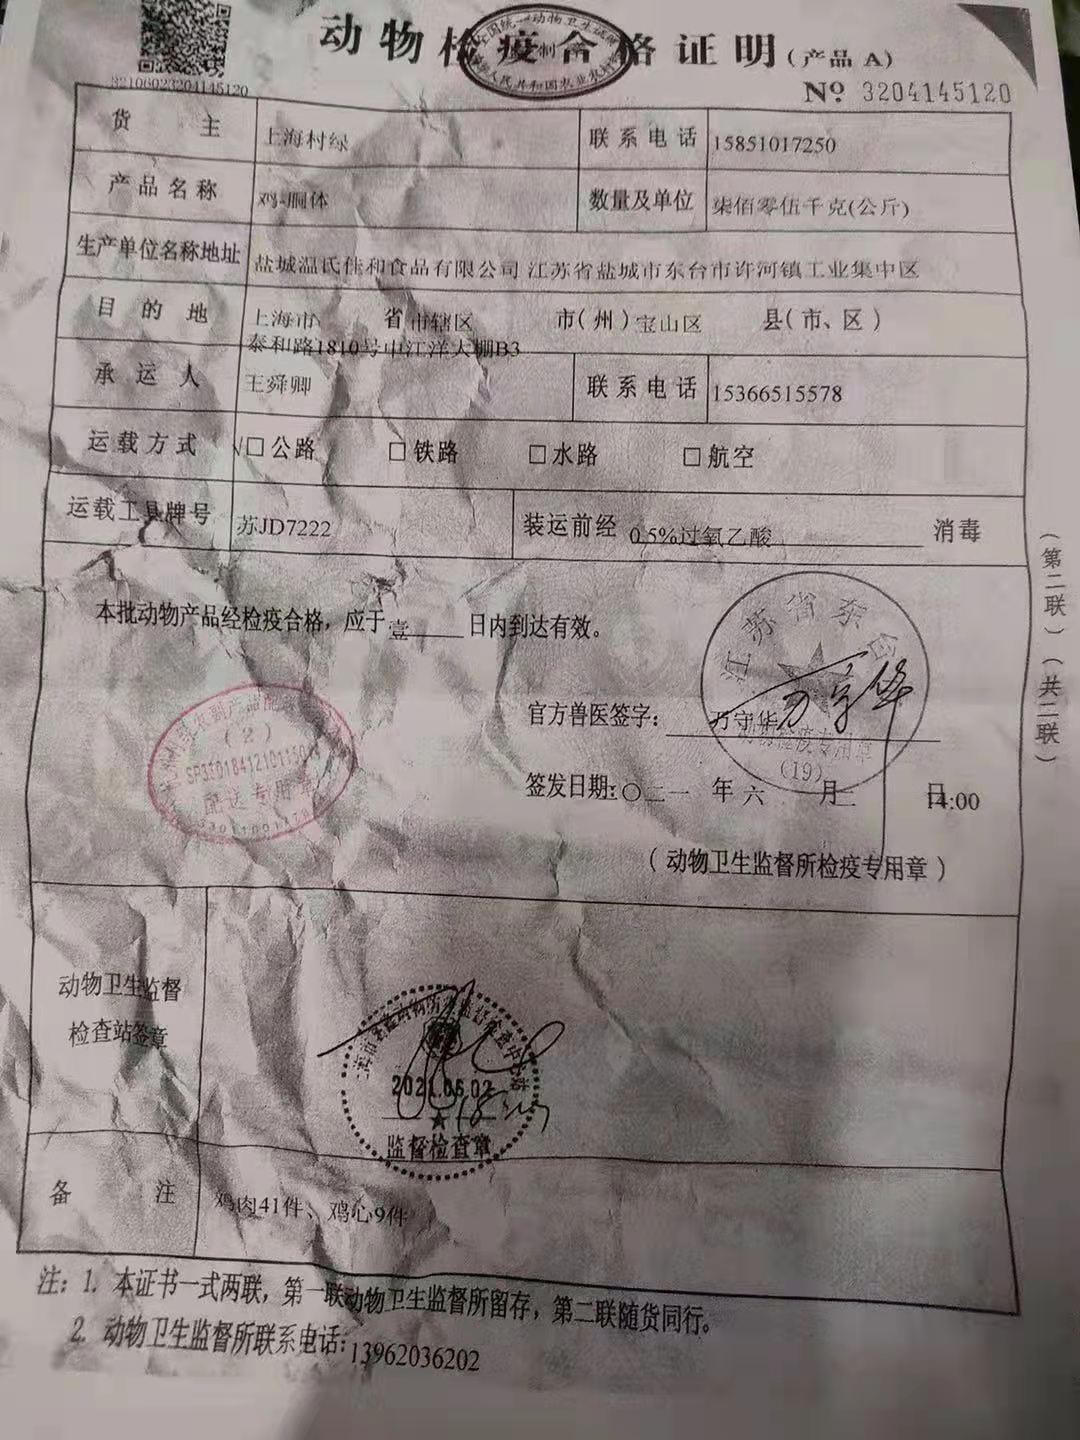 动物检疫合格证明(产品 A)
32106023204145120
№ 3204145120
货主 上海村绿 联系电话 15851017250
产品名称 鸡-胴体 数量及单位 柒佰零伍千克(公斤)
生产单位名称地址 盐城温氏佳和食品有限公司 江苏省盐城市东台市许河镇工业集中区
目的地 上海市 省 市辖区 市(州) 宝山区 县(市、区)
泰和路1810号中江洋大棚B3
承运人 王舜卿 联系电话 15366515578
运载方式 √□公路 □铁路 □水路 □航空
运载工具牌号 苏JD7222 装运前经 0.5%过氧乙酸 消毒
本批动物产品经检疫合格，应于 壹 日内到达有效。
江苏省东台
官方兽医签字: 万守华 万守华
检疫专用章
(19)
签发日期: 二〇二一 年 六 月 二 日 14:00
(动物卫生监督所检疫专用章)
(2)
配送专用章
动物卫生监督
检查站签章
2021.06.02
监督检查章
备注 鸡肉41件、鸡心9件
注: 1. 本证书一式两联，第一联动物卫生监督所留存，第二联随货同行。
2. 动物卫生监督所联系电话: 13962036202
(第二联)(共二联)